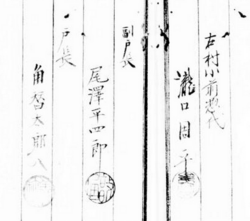 右村小前惣代
瀧口周平
副戸長
尾澤平四郎
戸長
角替太郎八